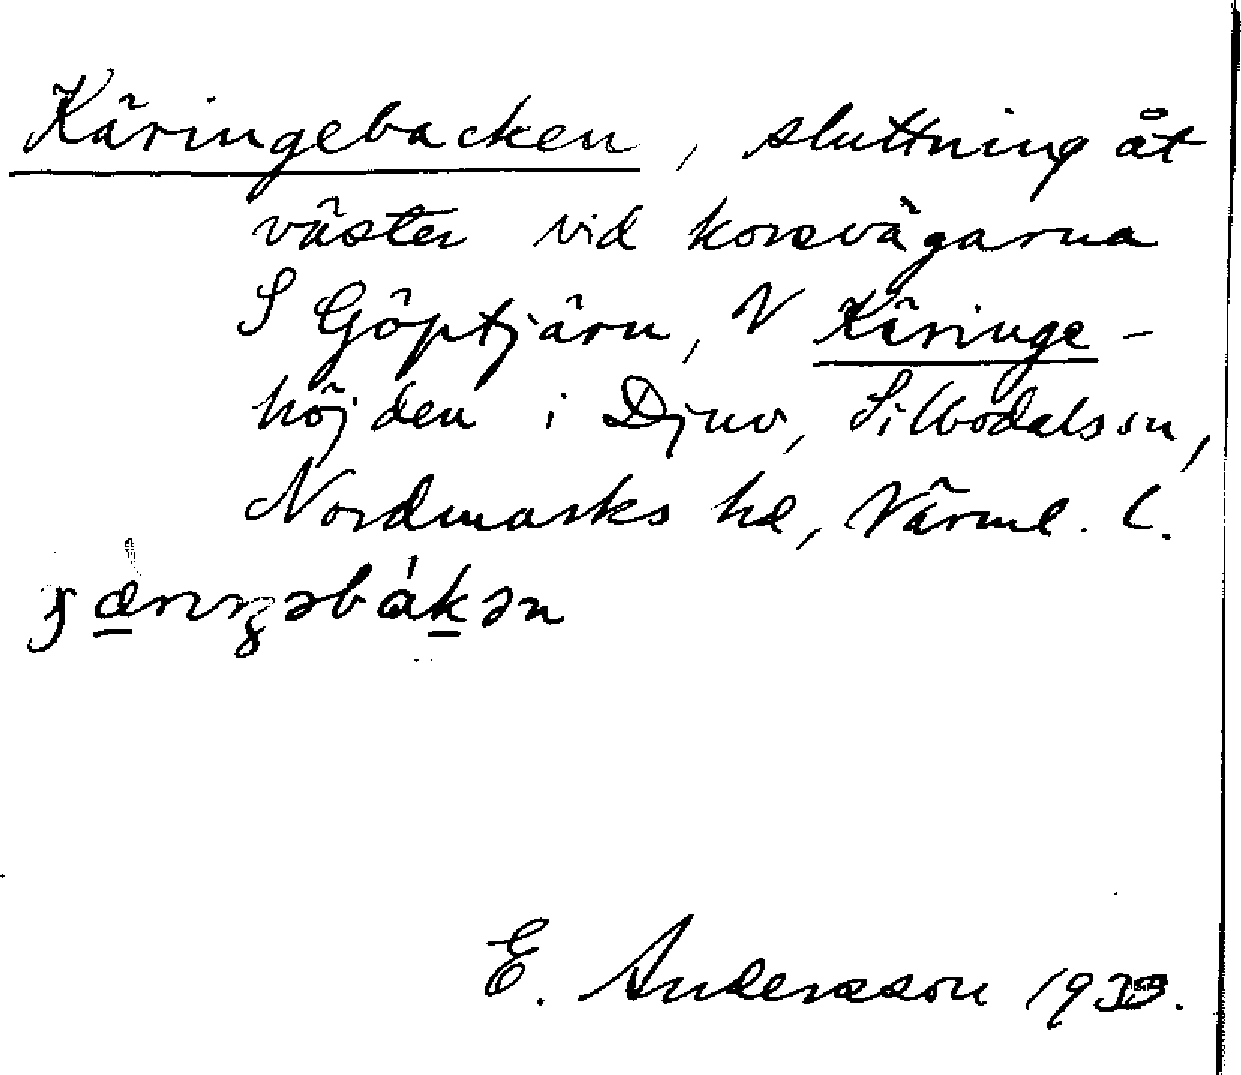 Käringebacken, sluttning åt
väster vid korsvägarna
S Göptjärn, N Käringe-
höjden i Djuv, Silbodals sn,
Nordmarks hd, Värml. l.
E. Andersson 1933.